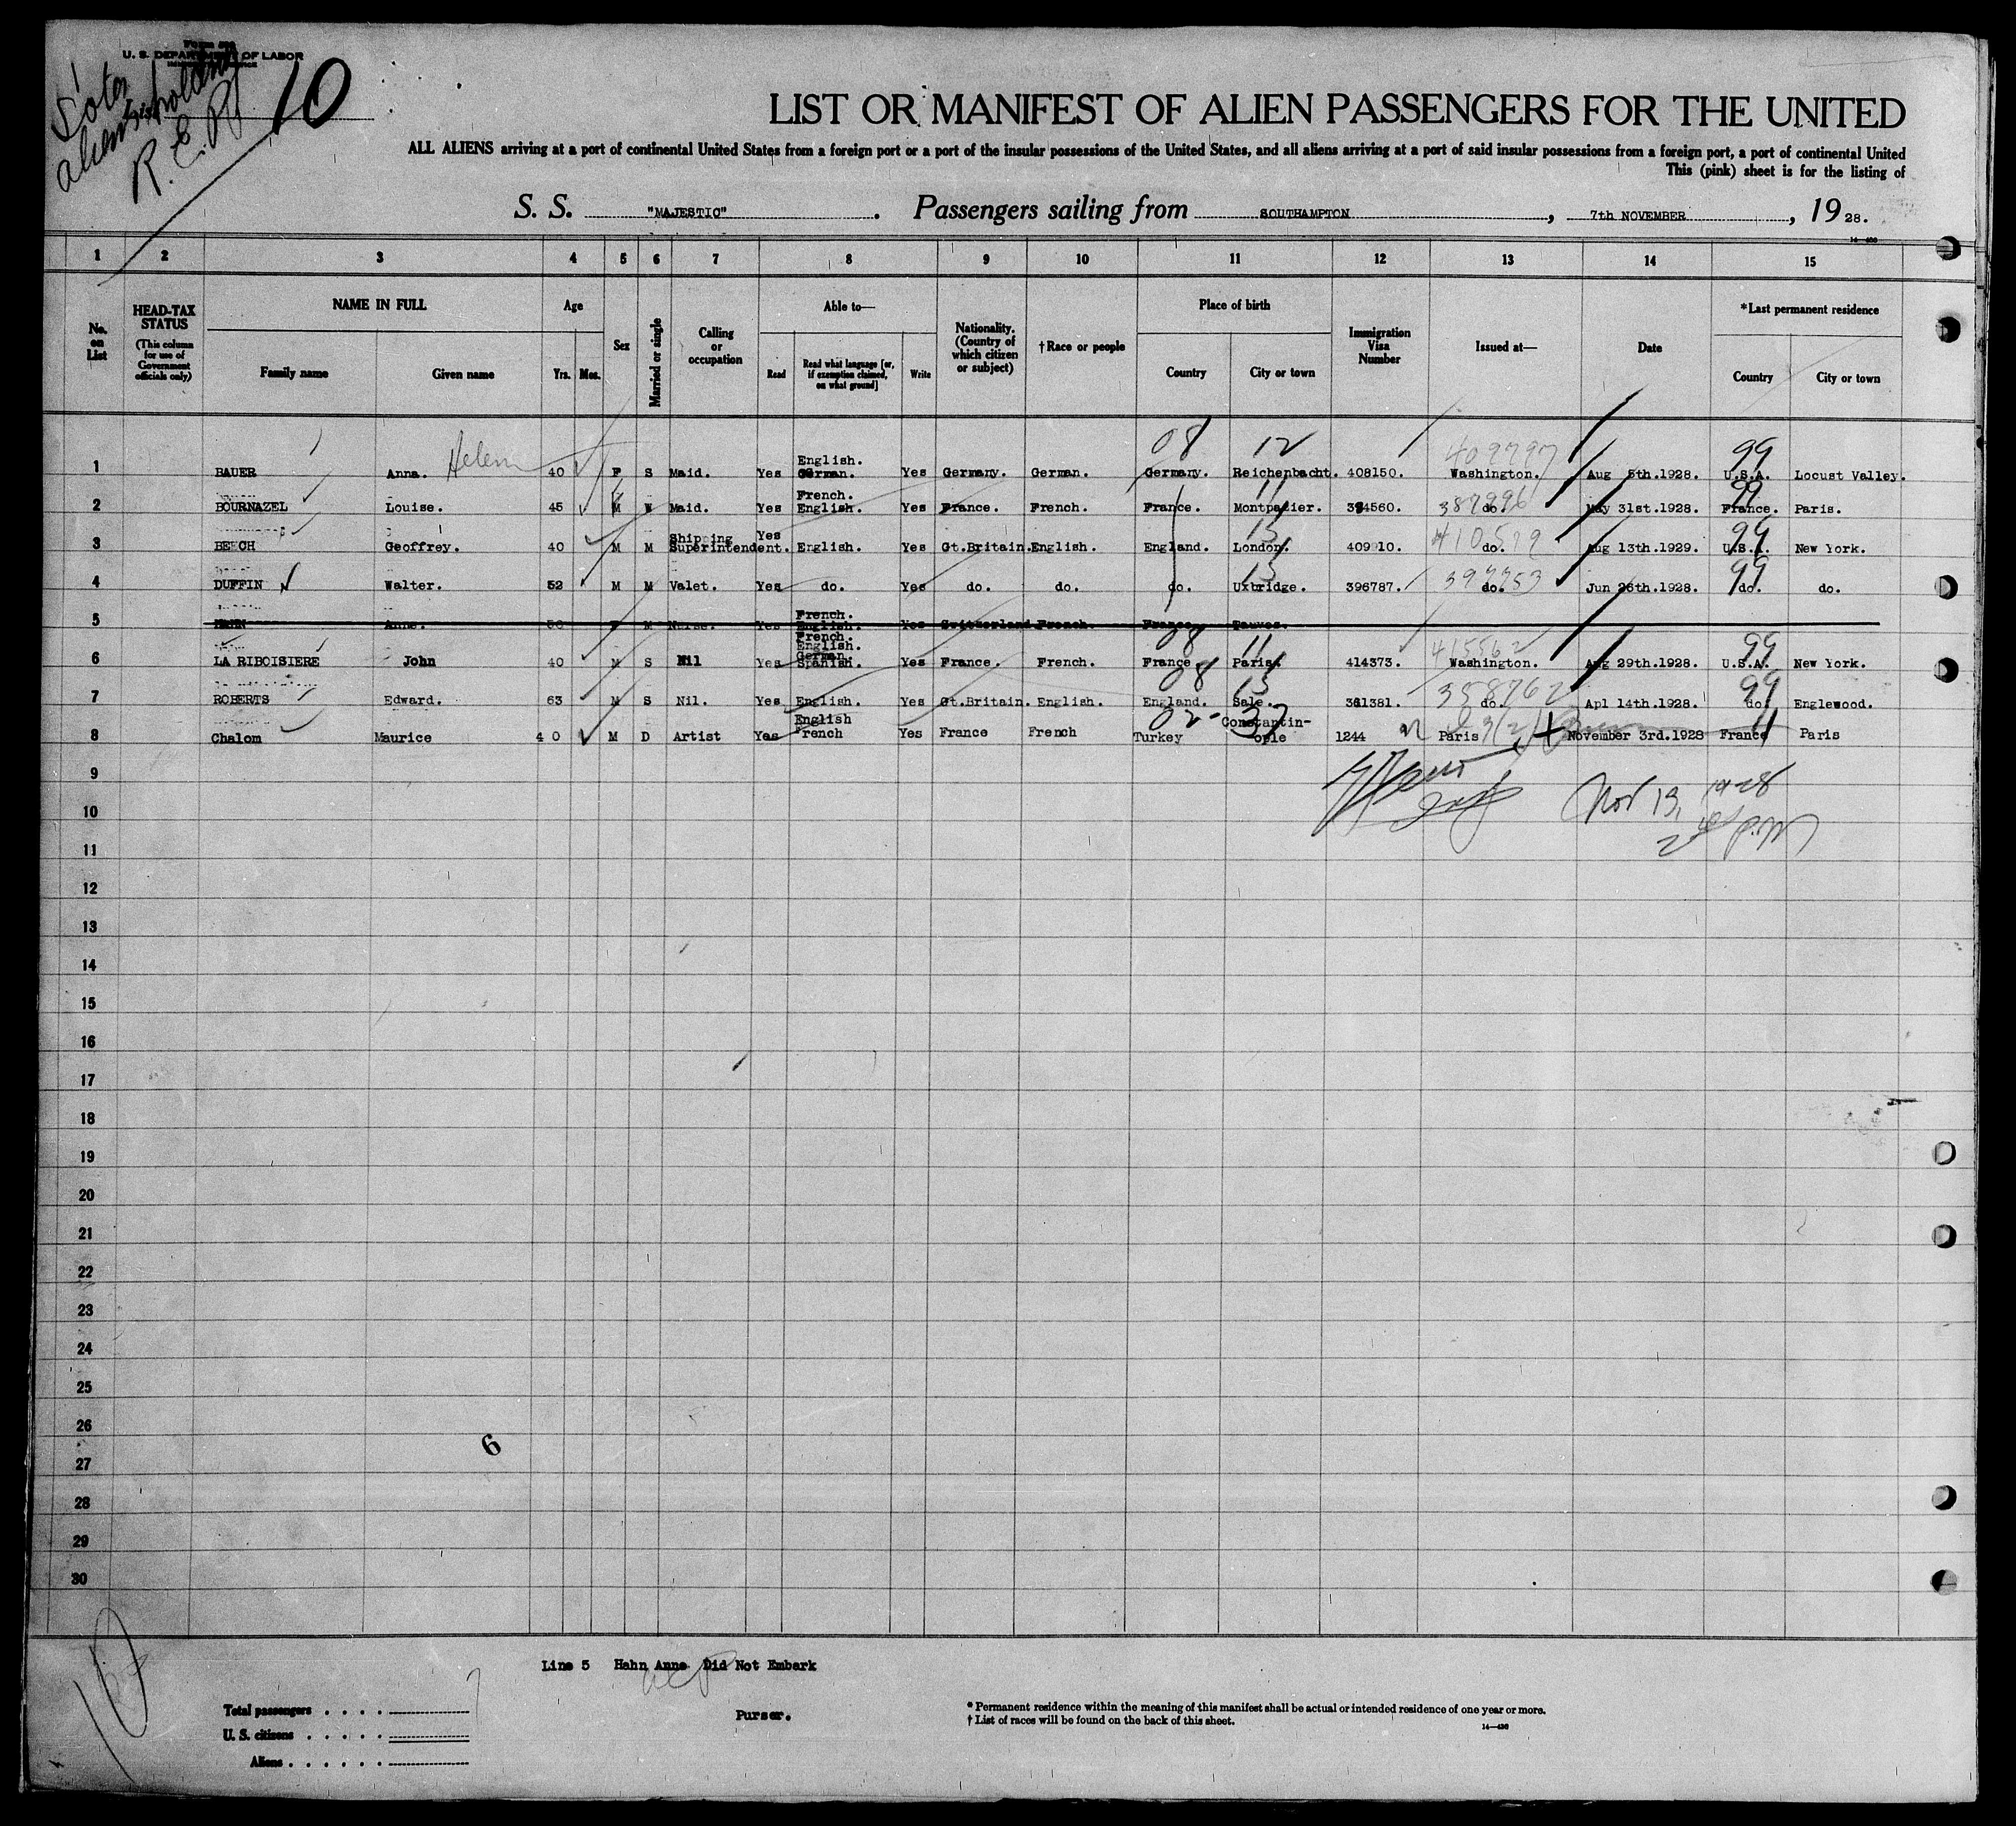 Form 500
U. S. DEPARTMENT OF LABOR
10
aliens
R.E.P.
LIST OR MANIFEST OF ALIEN PASSENGERS FOR THE UNITED
ALL ALIENS arriving at a port of continental United States from a foreign port or a port of the insular possessions of the United States, and all aliens arriving at a port of said insular possessions from a foreign port, a port of continental United
This (pink) sheet is for the listing of
S. S. "MAJESTIC". Passengers sailing from SOUTHAMPTON, 7th NOVEMBER, 1928.
1 2 3 4 5 6 7 8 9 10 11 12 13 14 15
No. on List
HEAD-TAX STATUS (This column for use of Government officials only)
NAME IN FULL Family name Given name
Age Yrs. Mos.
Sex
Married or single
Calling or occupation
Able to— Read Read what language [or, if exemption claimed, on what ground] Write
Nationality. (Country of which citizen or subject)
†Race or people
Place of birth Country City or town
Immigration Visa Number
Issued at—
Date
*Last permanent residence Country City or town
Helen 08 12 409797 99
1 BAUER Anna. 40 F S Maid. Yes English. German. Yes Germany. German. Germany. Reichenbacht. 408150. Washington. Aug 5th.1928. U.S.A. Locust Valley.
11 387996 99
2 BOURNAZEL Louise. 45 M W Maid. Yes French. English. Yes France. French. France. Montpazier. 384560. do. May 31st.1928. France. Paris.
13 410519 99
3 BEECH Geoffrey. 40 M M Shipping Superintendent. Yes English. Yes Gt.Britain. English. England. London. 409910. do. Aug 13th.1929. U.S.A. New York.
13 397753 99
4 DUFFIN Walter. 52 M M Valet. Yes do. Yes do. do. do. Uxbridge. 396787. do. Jun 26th.1928. do. do.
5 HAHN Anne. 50 F M Nurse. Yes French. English. Yes Switzerland French. France. Tauves.
08 11 415562 99
6 LA RIBOISIERE John 40 M S Nil Yes French. English. German. Spanish. Yes France. French. France Paris. 414373. Washington. Aug 29th.1928. U.S.A. New York.
08 13 358762 99
7 ROBERTS Edward. 63 M S Nil. Yes English. Yes Gt.Britain. English. England. Sale. 361381. do. Apl 14th.1928. do. Englewood.
02- 37 11
8 Chalom Maurice 40 M D Artist Yes English French Yes France French Turkey Constantin-ople 1244 Paris November 3rd.1928 France Paris
9
Nov 13, 1928
10
11
12
13
14
15
16
17
18
19
20
21
22
23
24
25
26
6
27
28
29
30
10
Line 5 Hahn Anne Did Not Embark
Purser.
Total passengers
U. S. citizens
Aliens
* Permanent residence within the meaning of this manifest shall be actual or intended residence of one year or more.
† List of races will be found on the back of this sheet.
14—430